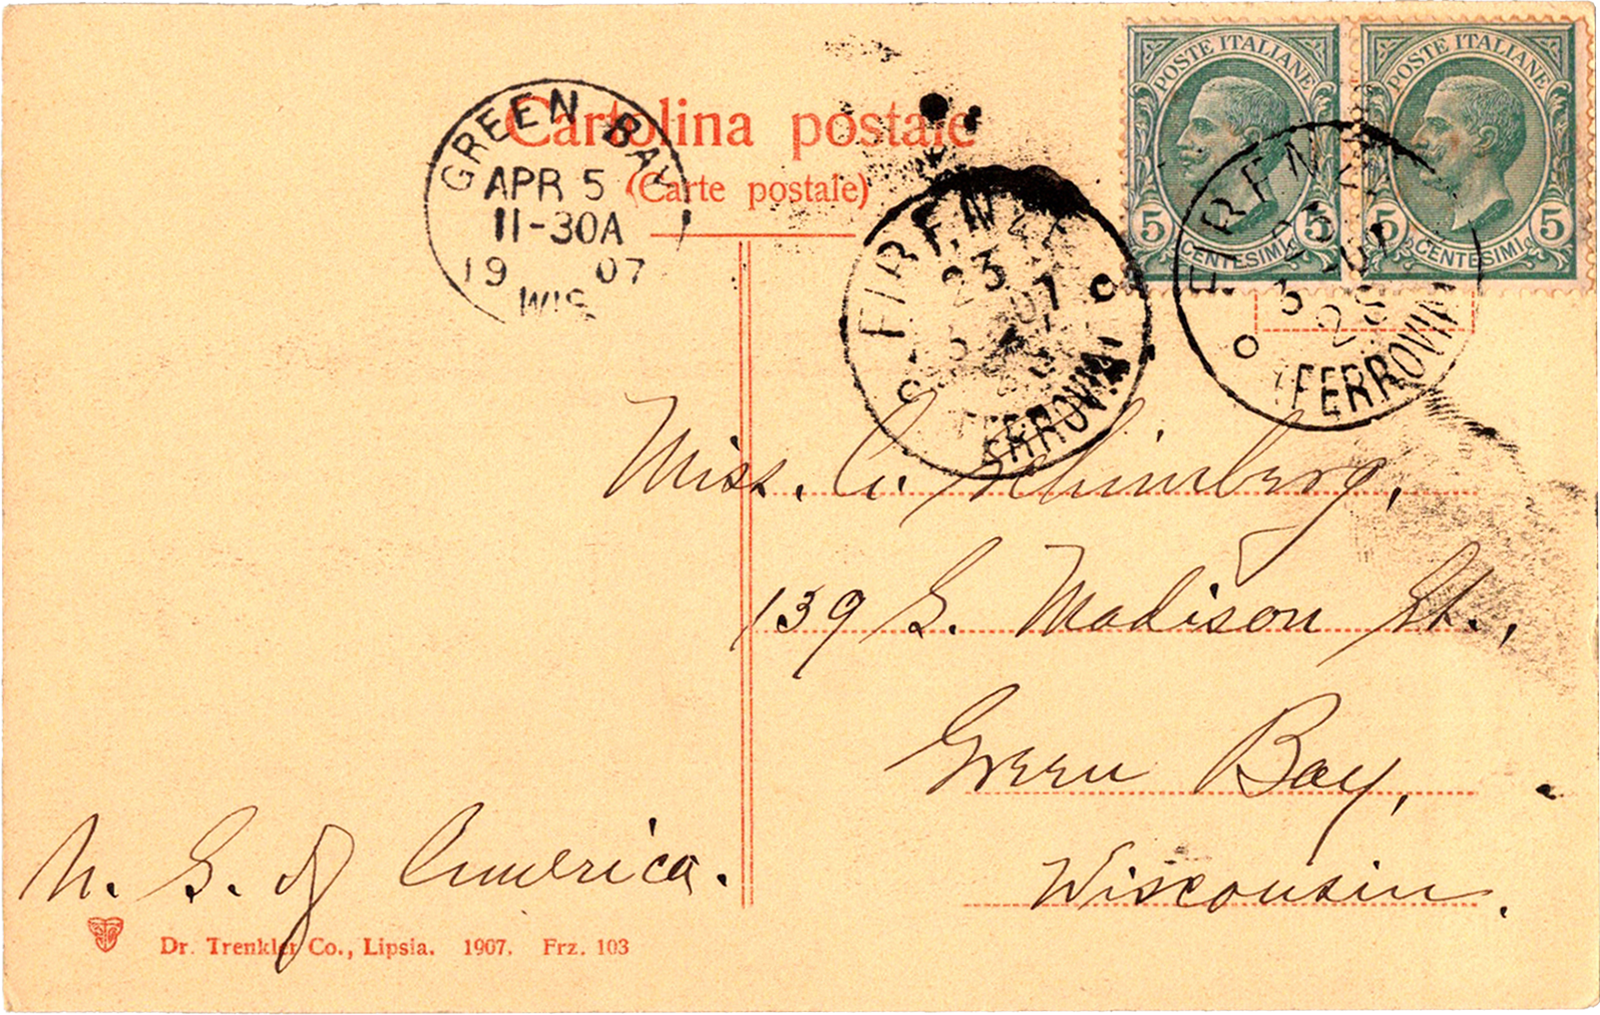 Cartolina postale
(Carte postale)
GREEN BAY
APR 5
11-30A
19 07
WIS
POSTE ITALIANE
5 CENTESIMI 5
POSTE ITALIANE
5 CENTESIMI 5
FIRENZE
23
3 07
FERROVIA
FIRENZE
23
3 07
FERROVIA
Miss. A. Schimberg,
139 S. Madison St.,
Green Bay,
Wisconsin.
U. S. of America.
Dr. Trenkler Co., Lipsia. 1907. Frz. 103